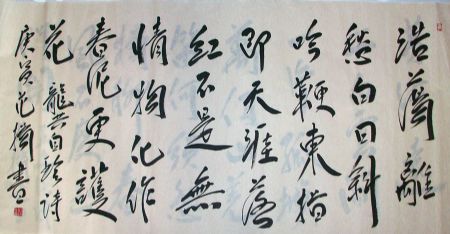 浩蕩離
愁白日斜
吟鞭東指
即天涯落
紅不是無
情物化作
春泥更護
花 龔自珍詩
庚寅范書